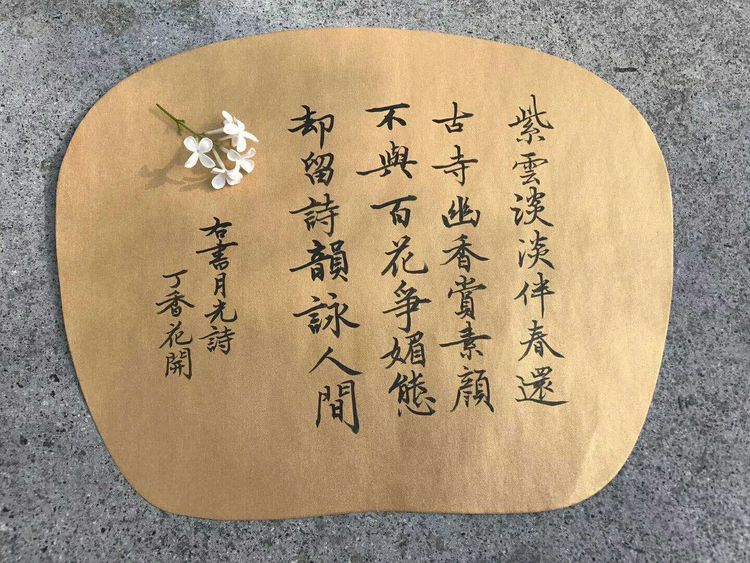 紫雲淡淡伴春還
古寺幽香賞素顏
不與百花爭媚態
却留詩韻詠人間
右書月光詩
丁香花開